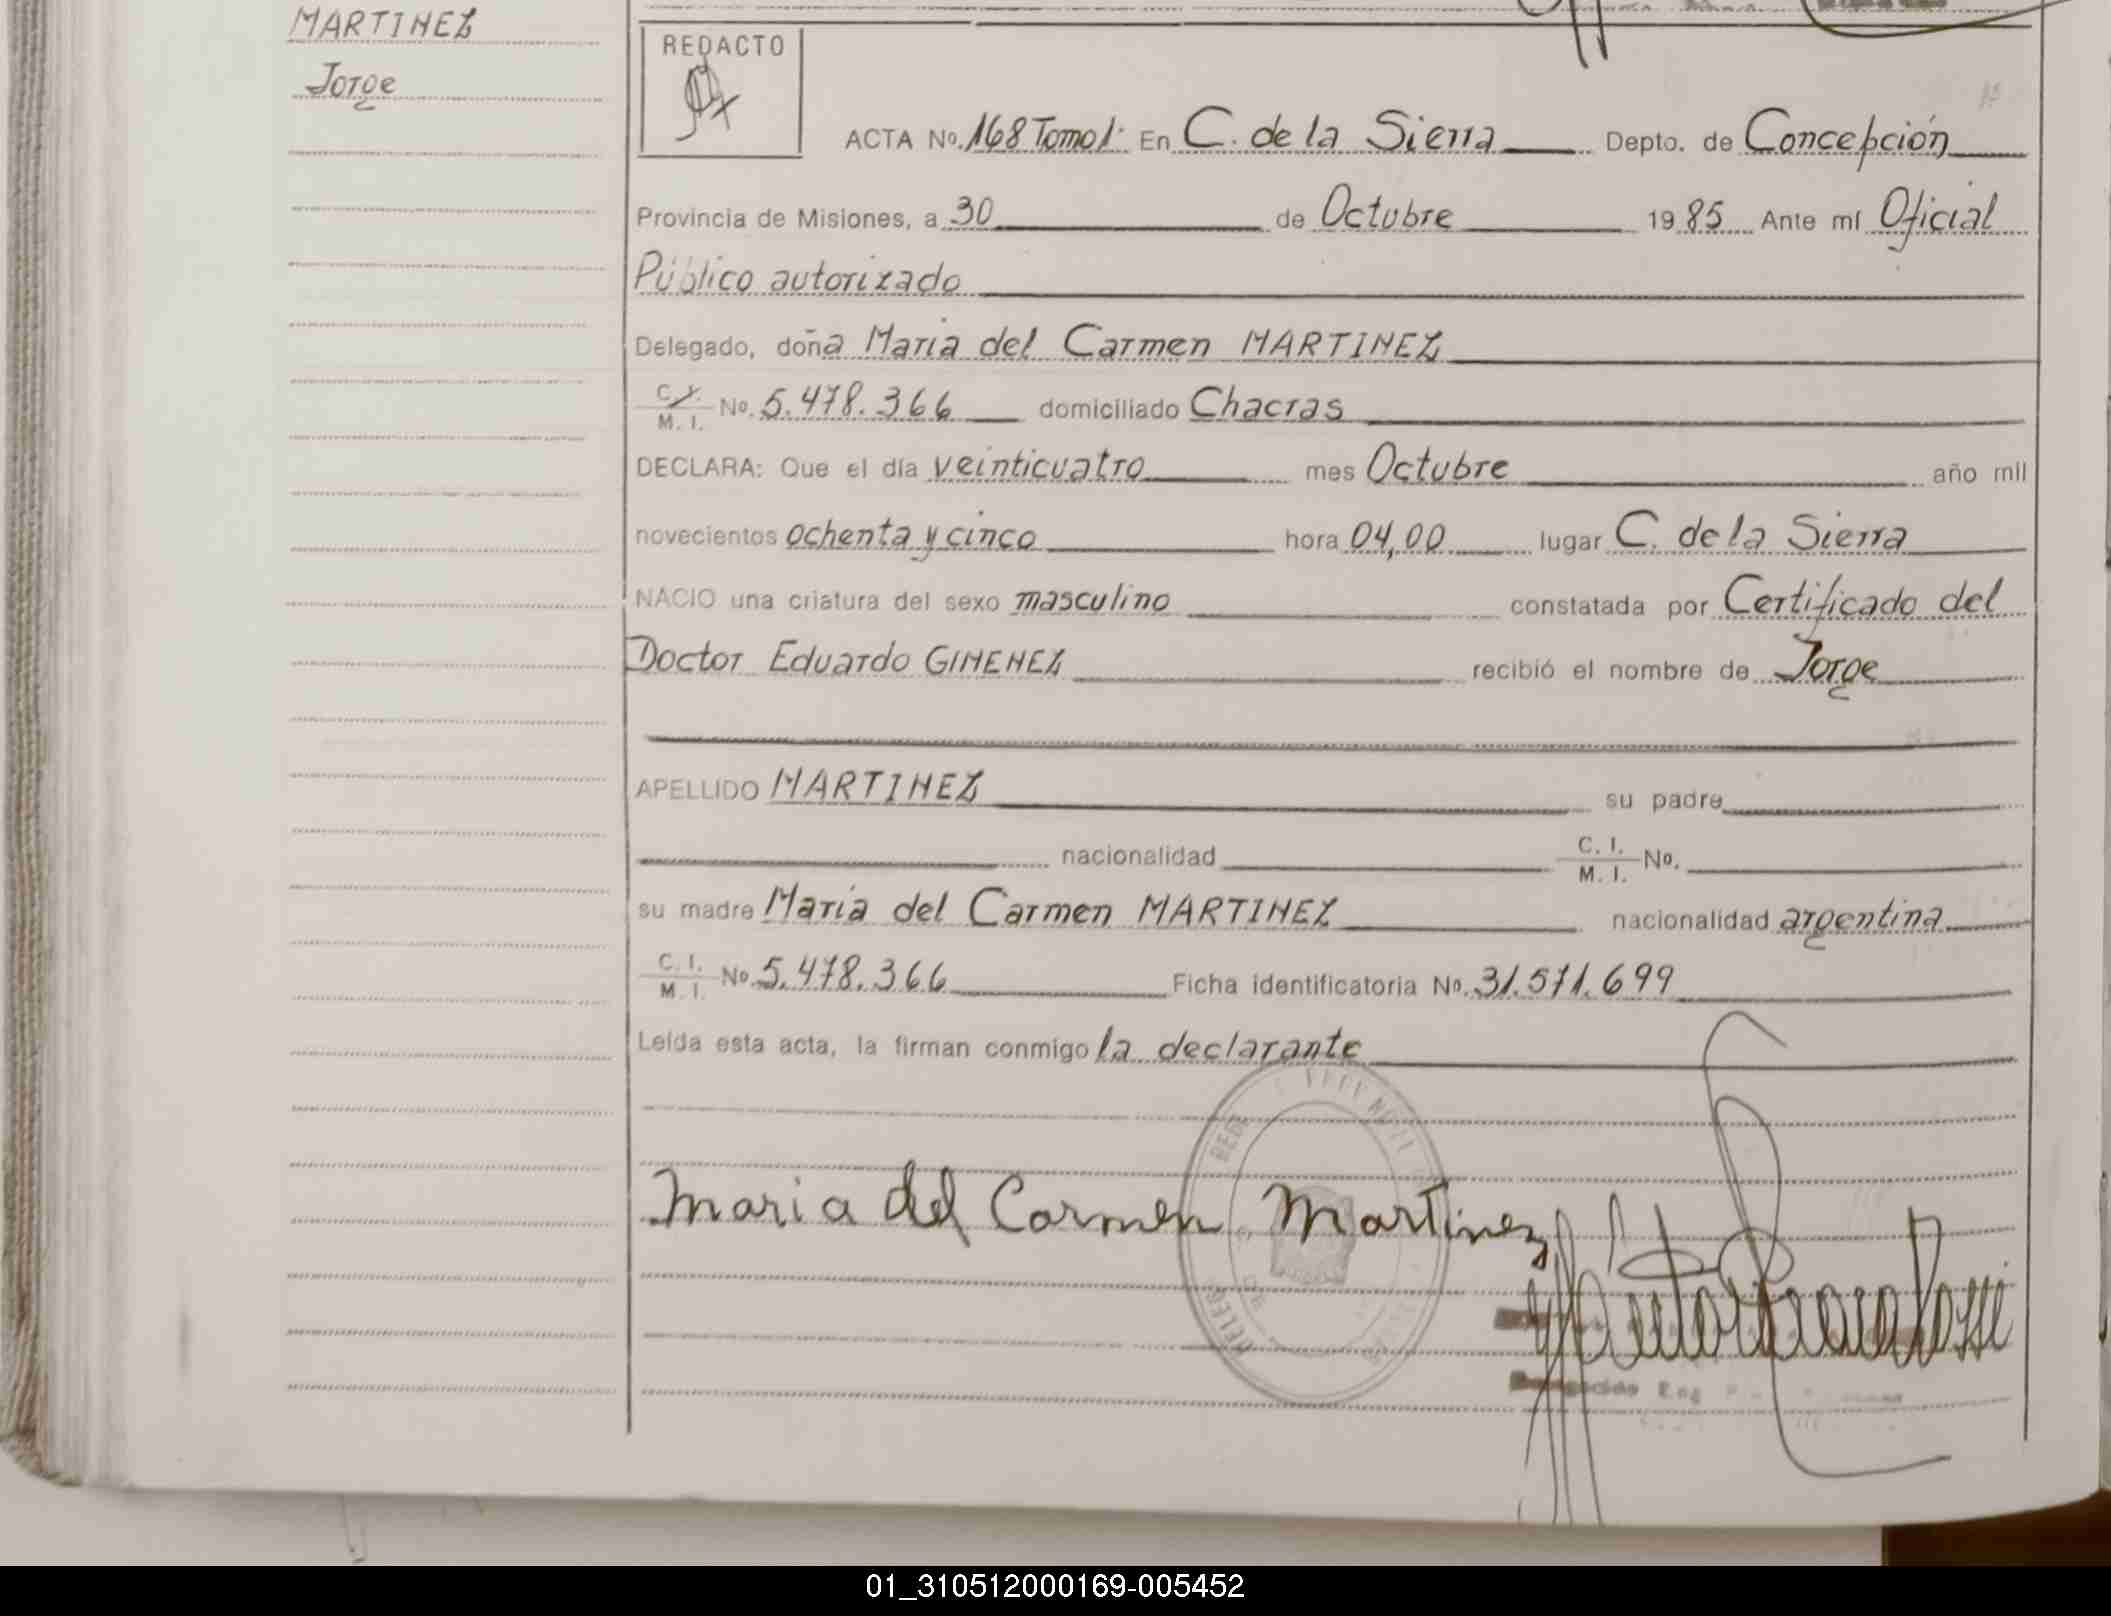 MARTINEZ
Jorge
REDACTO
ACTA No. 168 Tomo 1º En C. de la Sierra Depto. de Concepción
Provincia de Misiones, a 30 de Octubre 1985 Ante mí Oficial
Público autorizado
Delegado, doña Maria del Carmen MARTINEZ
C. I. M. I. No. 5.478.366 domiciliado Chacras
DECLARA: Que el día veinticuatro mes Octubre año mil
novecientos ochenta y cinco hora 04,00 lugar C. de la Sierra
NACIO una criatura del sexo masculino constatada por Certificado del
Doctor Eduardo GIMENEZ recibió el nombre de Jorge
APELLIDO MARTINEZ su padre
nacionalidad C. I. M. I. No.
su madre Maria del Carmen MARTINEZ nacionalidad argentina
C. I. M. I. No. 5.478.366 Ficha identificatoria No. 31.571.699
Leída esta acta, la firman conmigo la declarante
Maria del Carmen Martinez
01_310512000169-005452